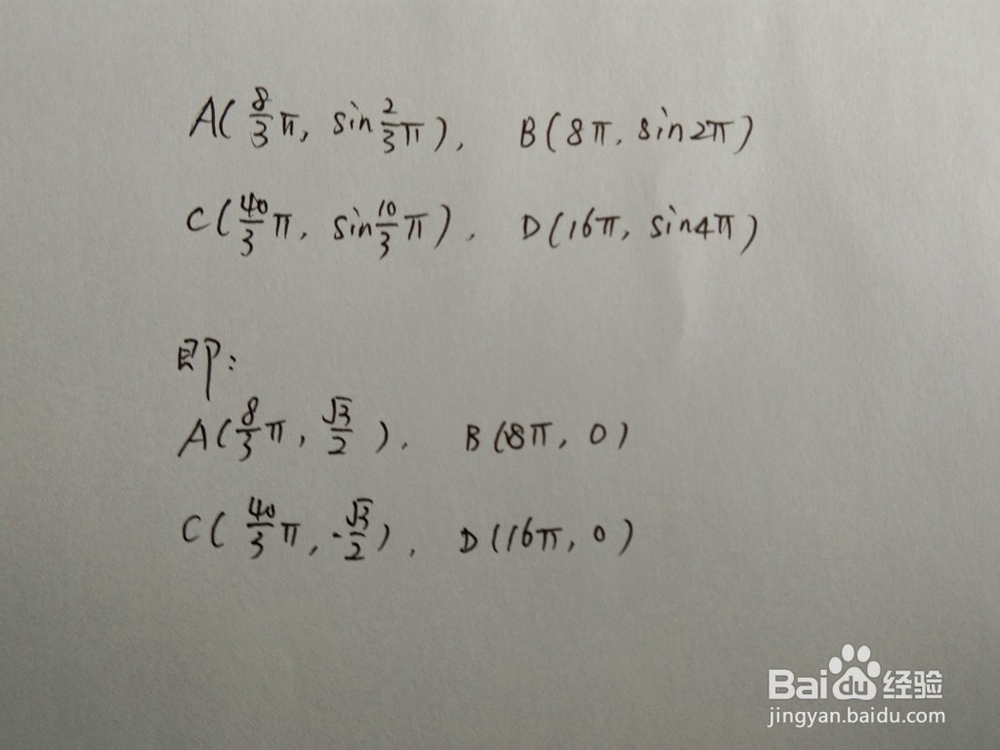 A(8/3π, sin2/3π), B(8π, sin2π)
C(40/3π, sin10/3π), D(16π, sin4π)
即:
A(8/3π, √3/2), B(8π, 0)
C(40/3π, -√3/2), D(16π, 0)
Baidu经验
jingyan.baidu.com